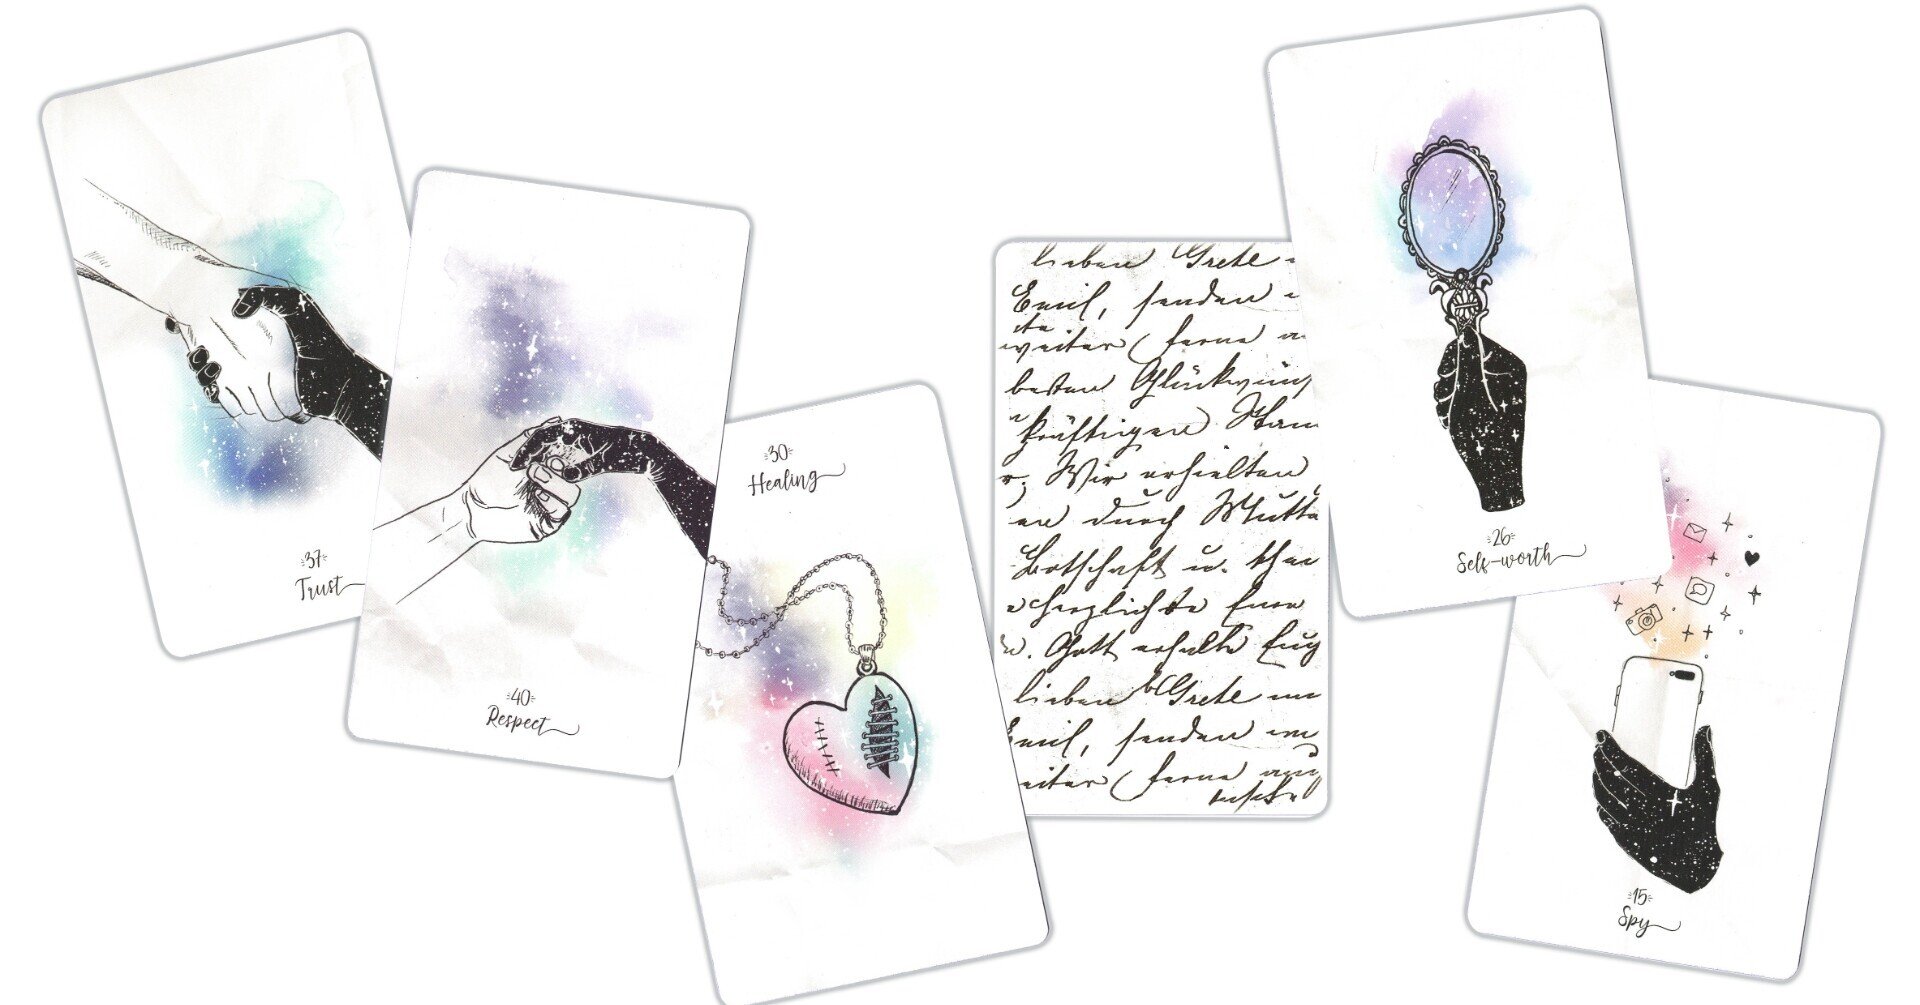 37
Trust
40
Respect
30
Healing
lieben Grete
Emil, senden
weiter Ferne
besten Glückwünsch
kräftigen Stam
Wir erhielten
en durch Mutte
Botschaft u.
herzlichste Eure
Gott erhalte
lieben Grete un
Emil, senden
weiter Ferne
26
Self-worth
15
Spy